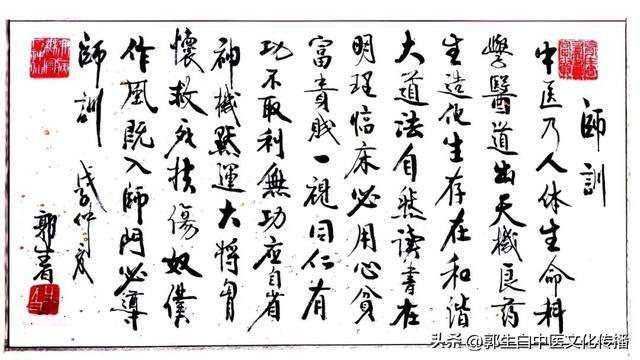 師訓
中医乃人体生命科
學醫道出天機良药
生造化生存在和谐
大道法自然读書在
明理临床必用心貧
富貴賤一視同仁有
功不取利無功应自省
神機默運大將胸
懷救死扶傷奴僕
作風既入師門必遵
師訓
戊子仲夏
郭生白
头条 @郭生白中医文化传播